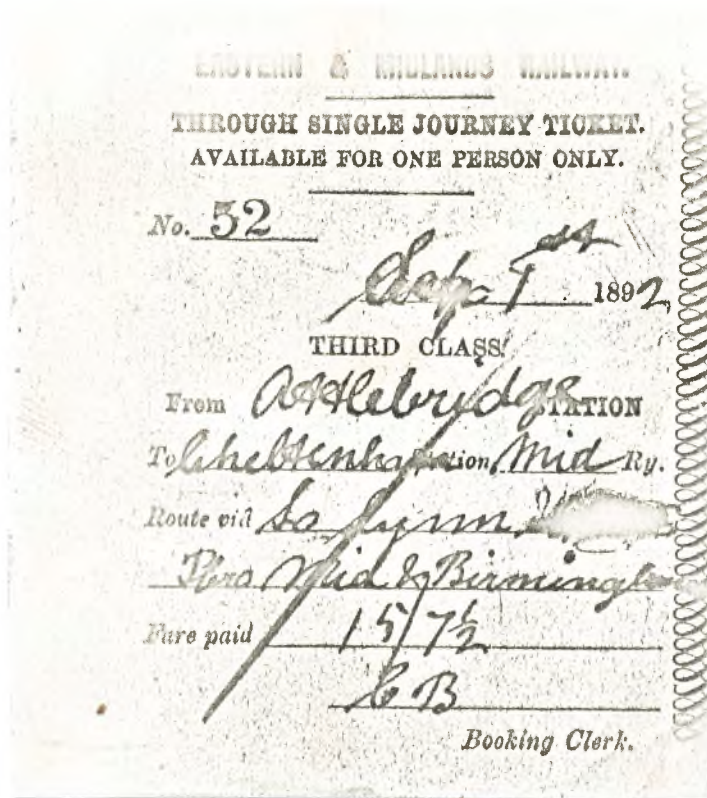 EASTERN & MIDLANDS RAILWAY.
THROUGH SINGLE JOURNEY TICKET.
AVAILABLE FOR ONE PERSON ONLY.
No. 52
Sep 1st 1892
THIRD CLASS
From Attlebridge STATION
To Cheltenham Station Mid Ry.
Route viâ So Lynn
Mid & Birmingham
Fare paid 15/7½
C B
Booking Clerk.